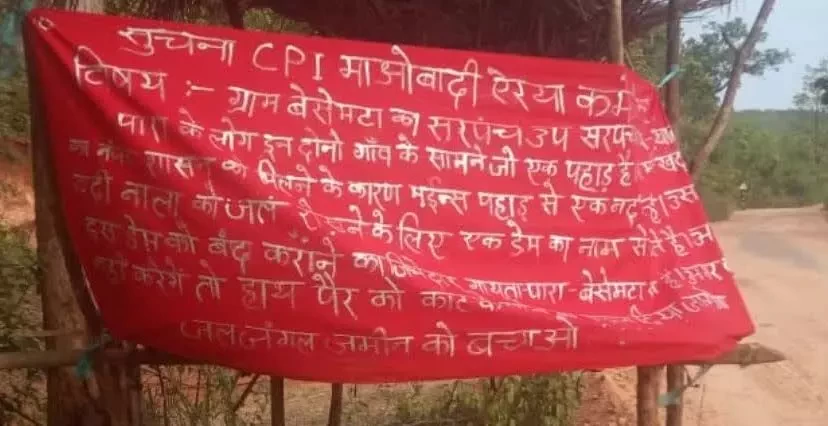 सुचना CPI माओवादी ऐरया कमे
विषय :- ग्राम बेसेमटा का सरपंच उप सरपंच
पारा के लोग इन दोनो गाँव के सामने जो एक पहाड़ है
शासन को मिलने के कारण माईन्स पहाड़ से एक नदी है। उस
नदी नाला को जल रोकने के लिए एक डेम का नाम सेते है।
इस डेम को बंद कराने का गायतापारा - बेसेमटा
नही करेगें तो हाथ पैर को काट
जल जंगल जमीन को बचाओ